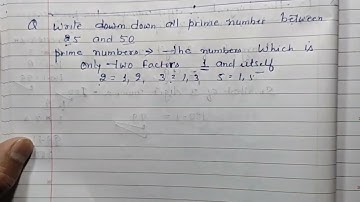 Q Write down down all prime number between
25 and 50
prime numbers → The numbers which is
only two factors 1 and itself
2 = 1, 2, 3 = 1, 3 5 = 1, 5